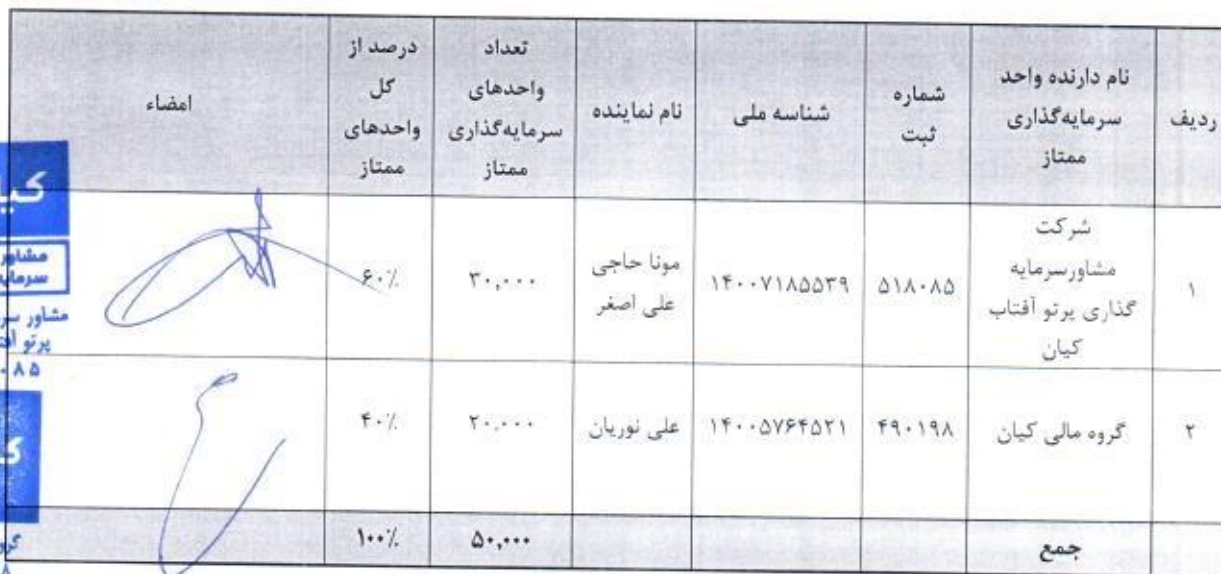 ردیف
نام دارنده واحد
سرمایه‌گذاری
ممتاز
شماره
ثبت
شناسه ملی
نام نماینده
تعداد
واحدهای
سرمایه‌گذاری
ممتاز
درصد از
کل
واحدهای
ممتاز
امضاء
۱
شرکت
مشاورسرمایه
گذاری پرتو آفتاب
کیان
۵۱۸۰۸۵
۱۴۰۰۷۱۸۵۵۳۹
مونا حاجی
علی اصغر
۳۰,۰۰۰
۶۰٪
۲
گروه مالی کیان
۴۹۰۱۹۸
۱۴۰۰۵۷۶۴۵۲۱
علی نوریان
۲۰,۰۰۰
۴۰٪
جمع
۵۰,۰۰۰
۱۰۰٪
مشاور
مشاور
پرتو